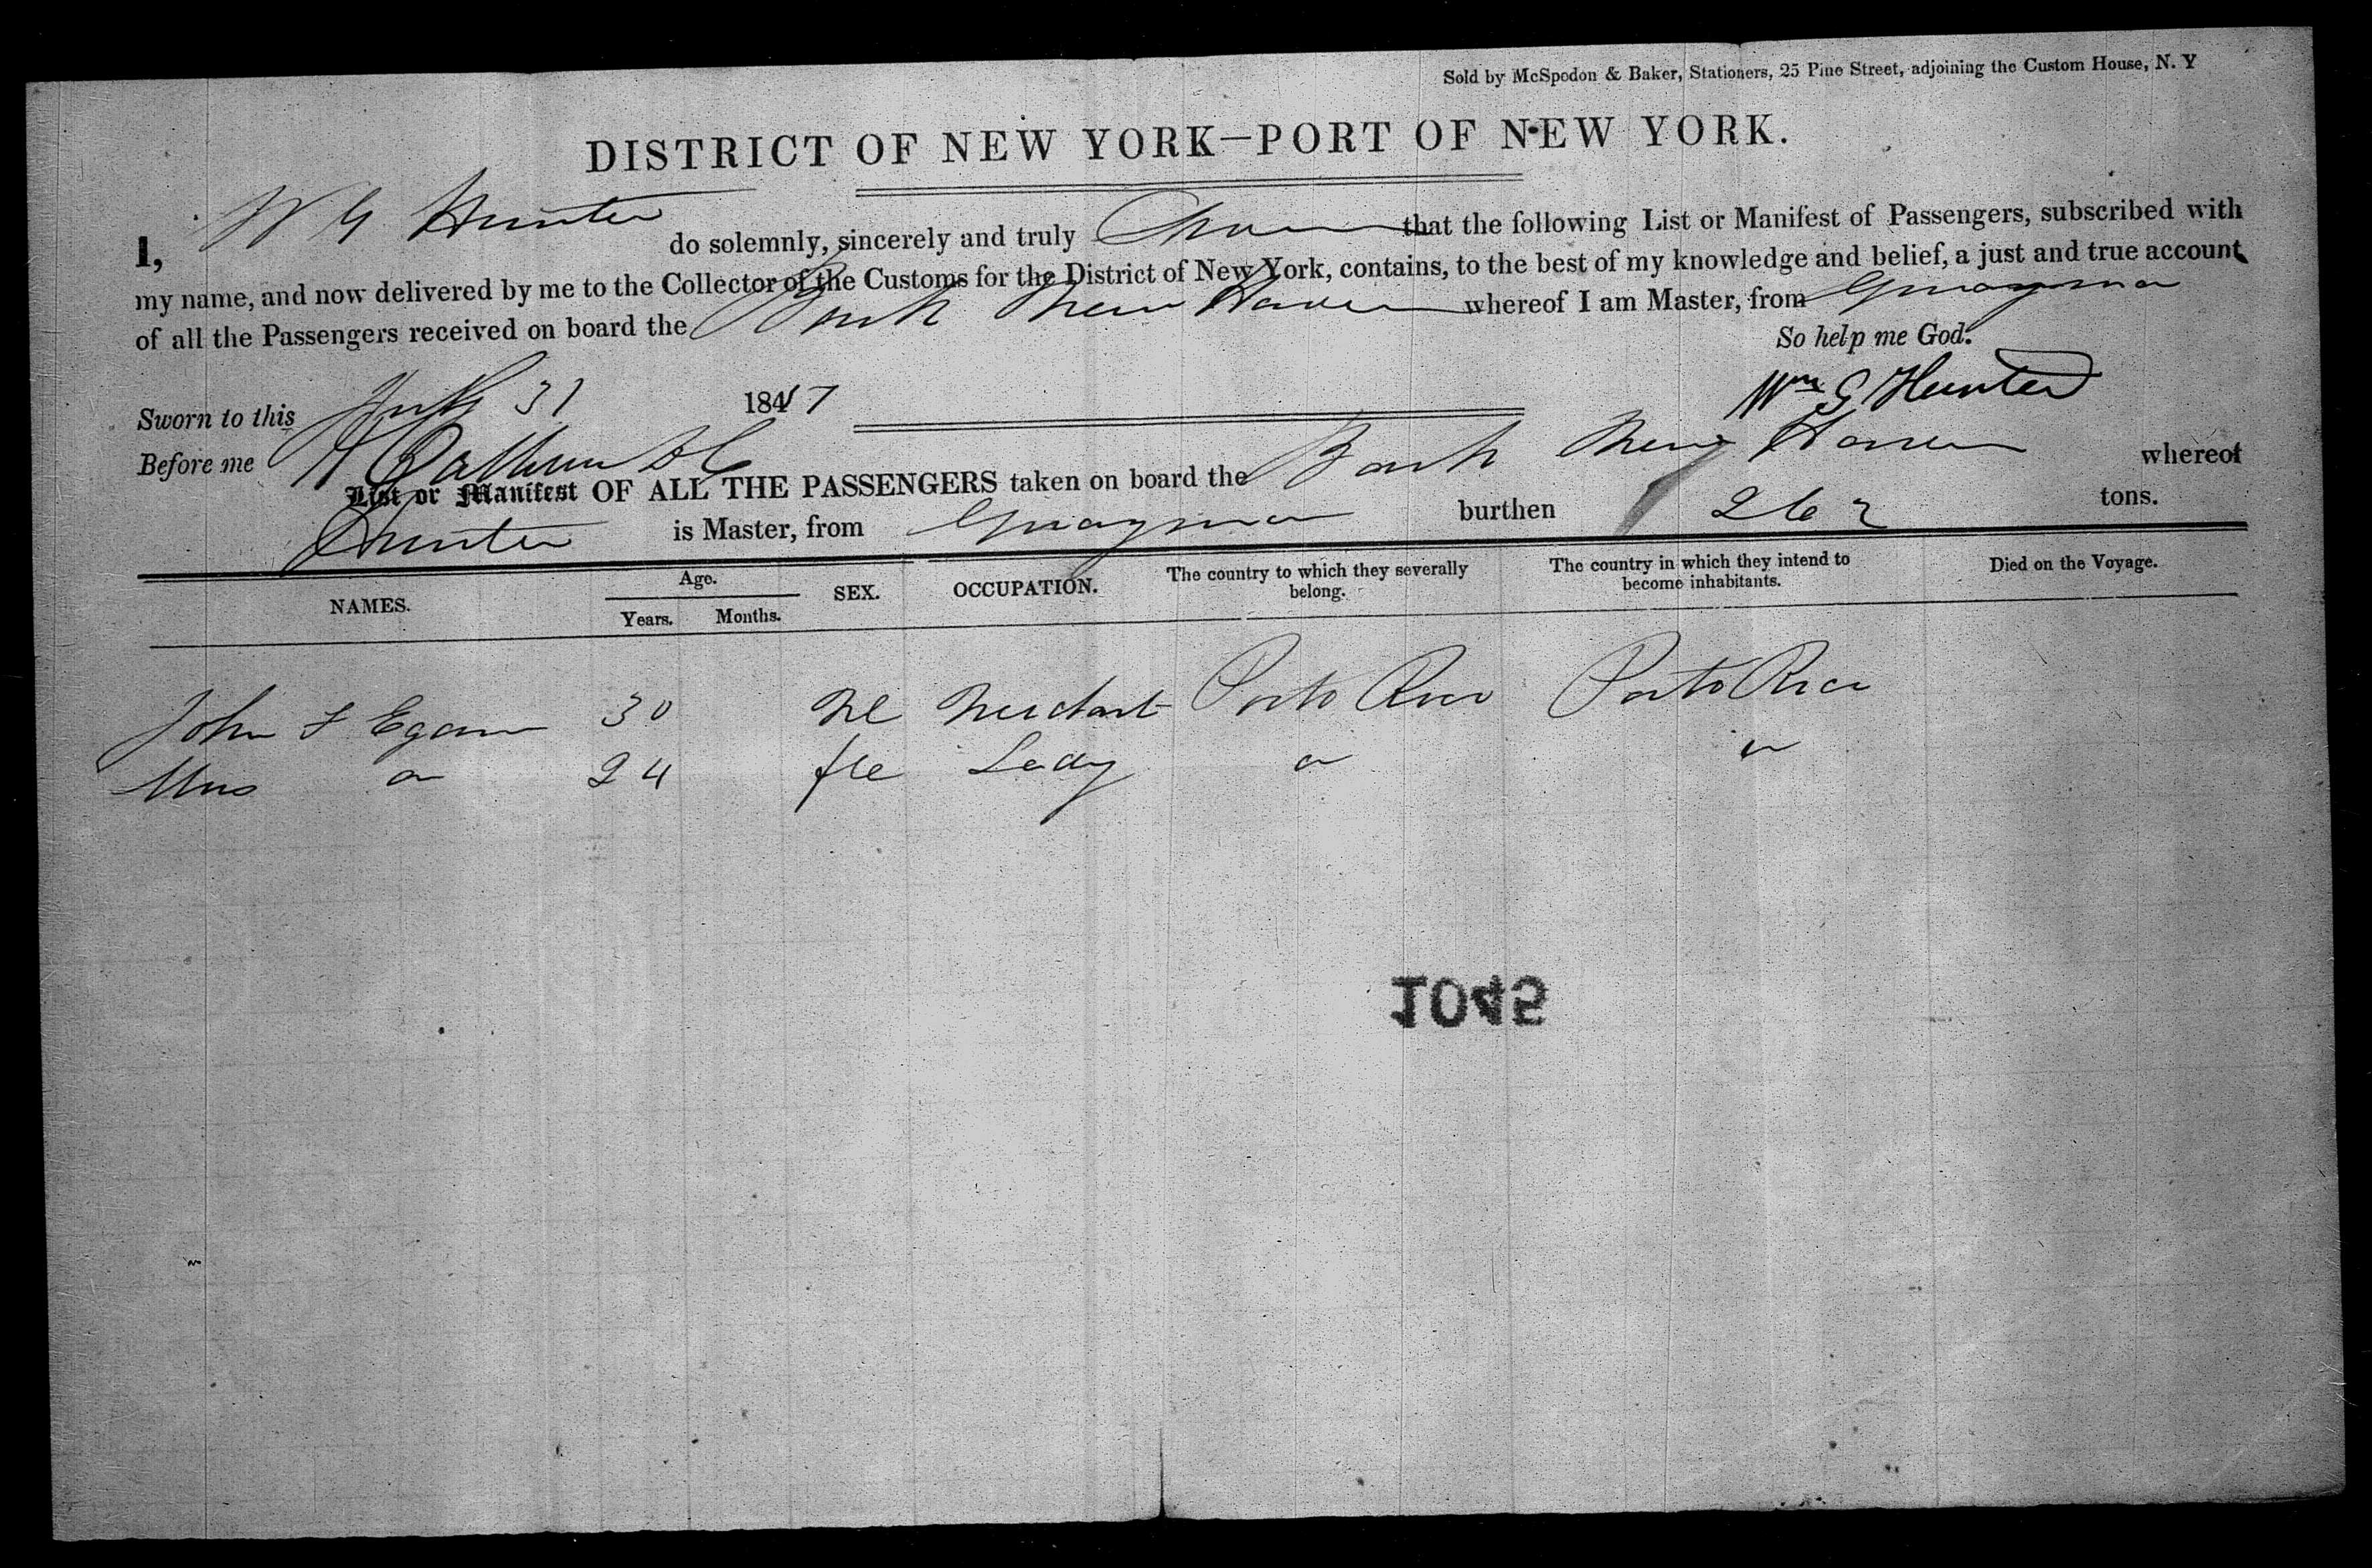 Sold by McSpedon & Baker, Stationers, 25 Pine Street, adjoining the Custom House, N. Y
DISTRICT OF NEW YORK—PORT OF NEW YORK.
I, W G Hunter do solemnly, sincerely and truly that the following List or Manifest of Passengers, subscribed with
my name, and now delivered by me to the Collector of the Customs for the District of New York, contains, to the best of my knowledge and belief, a just and true account
of all the Passengers received on board the Bark New Haven whereof I am Master, from Guayama
So help me God.
Sworn to this July 31 1847 Wm G Hunter
Before me
List or Manifest OF ALL THE PASSENGERS taken on board the Bark New Haven whereof
Hunter is Master, from Guayama burthen 262 tons.
NAMES. Age. Years. Months. SEX. OCCUPATION. The country to which they severally belong. The country in which they intend to become inhabitants. Died on the Voyage.
John F Egan 30 Ml Merchant Porto Rico Porto Rico
Mrs " 24 fle Lady " "
1045